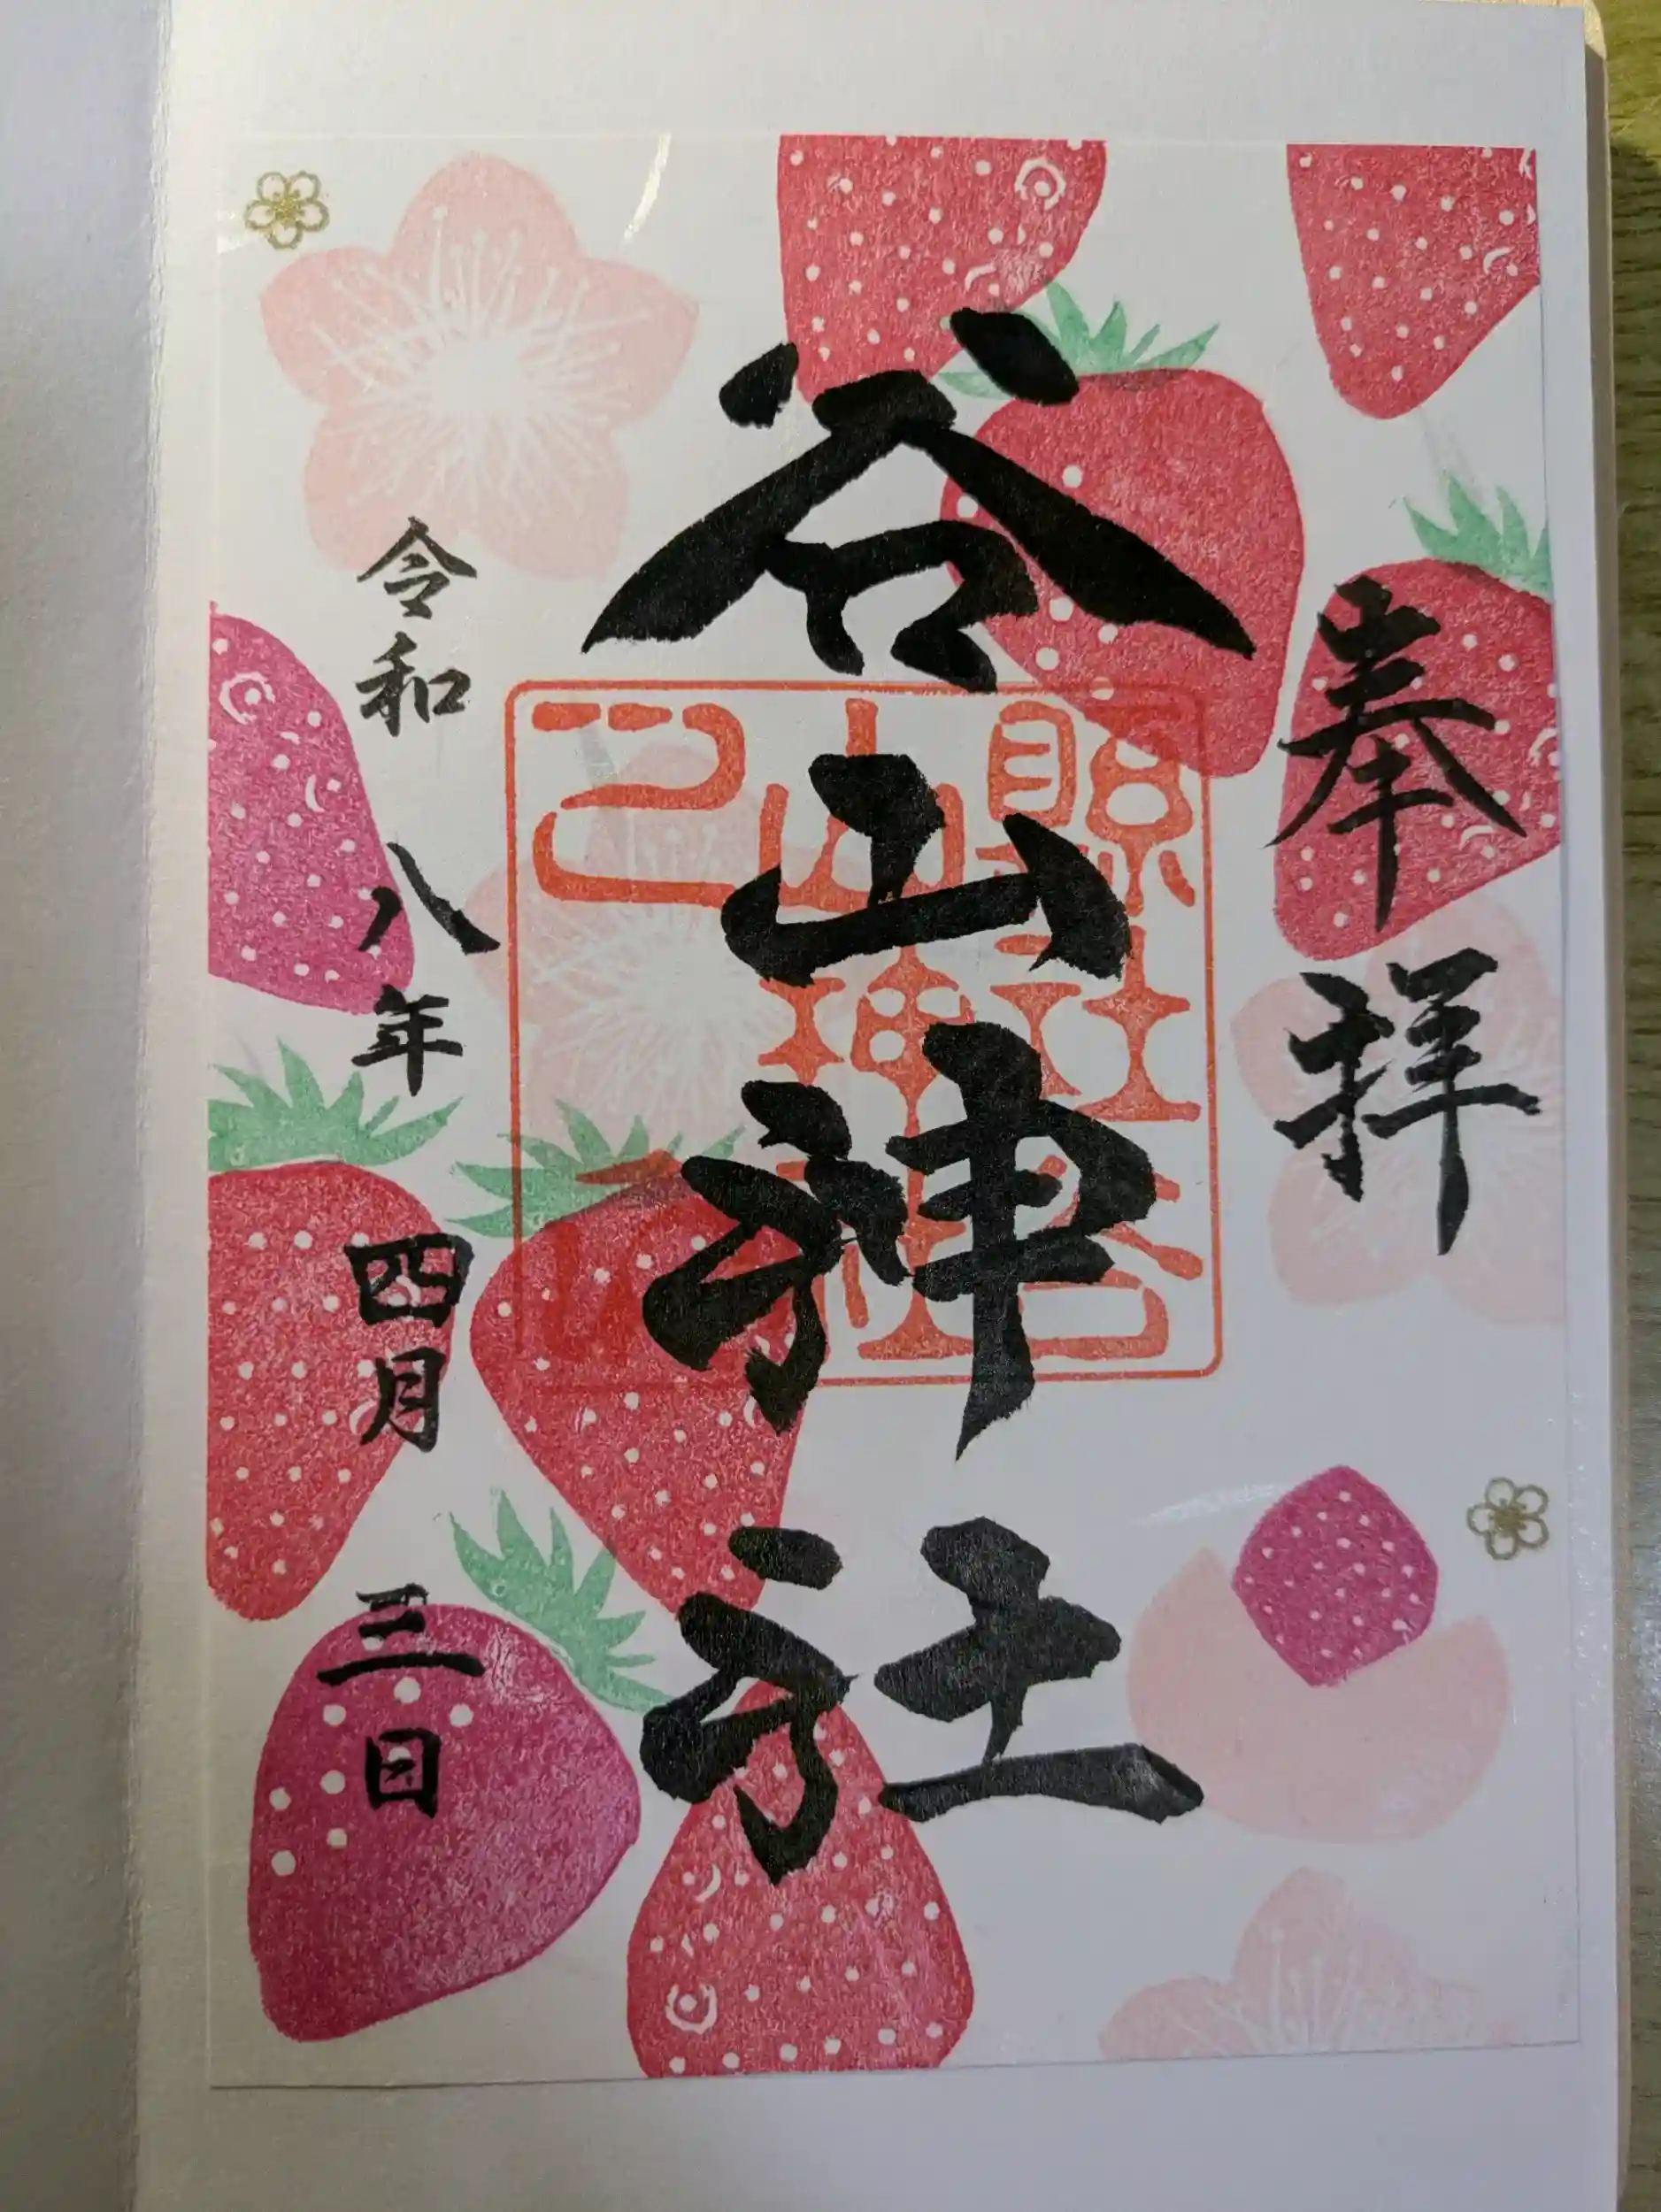 奉拝
谷山神社
縣社谷
山神社
令和八年四月三日